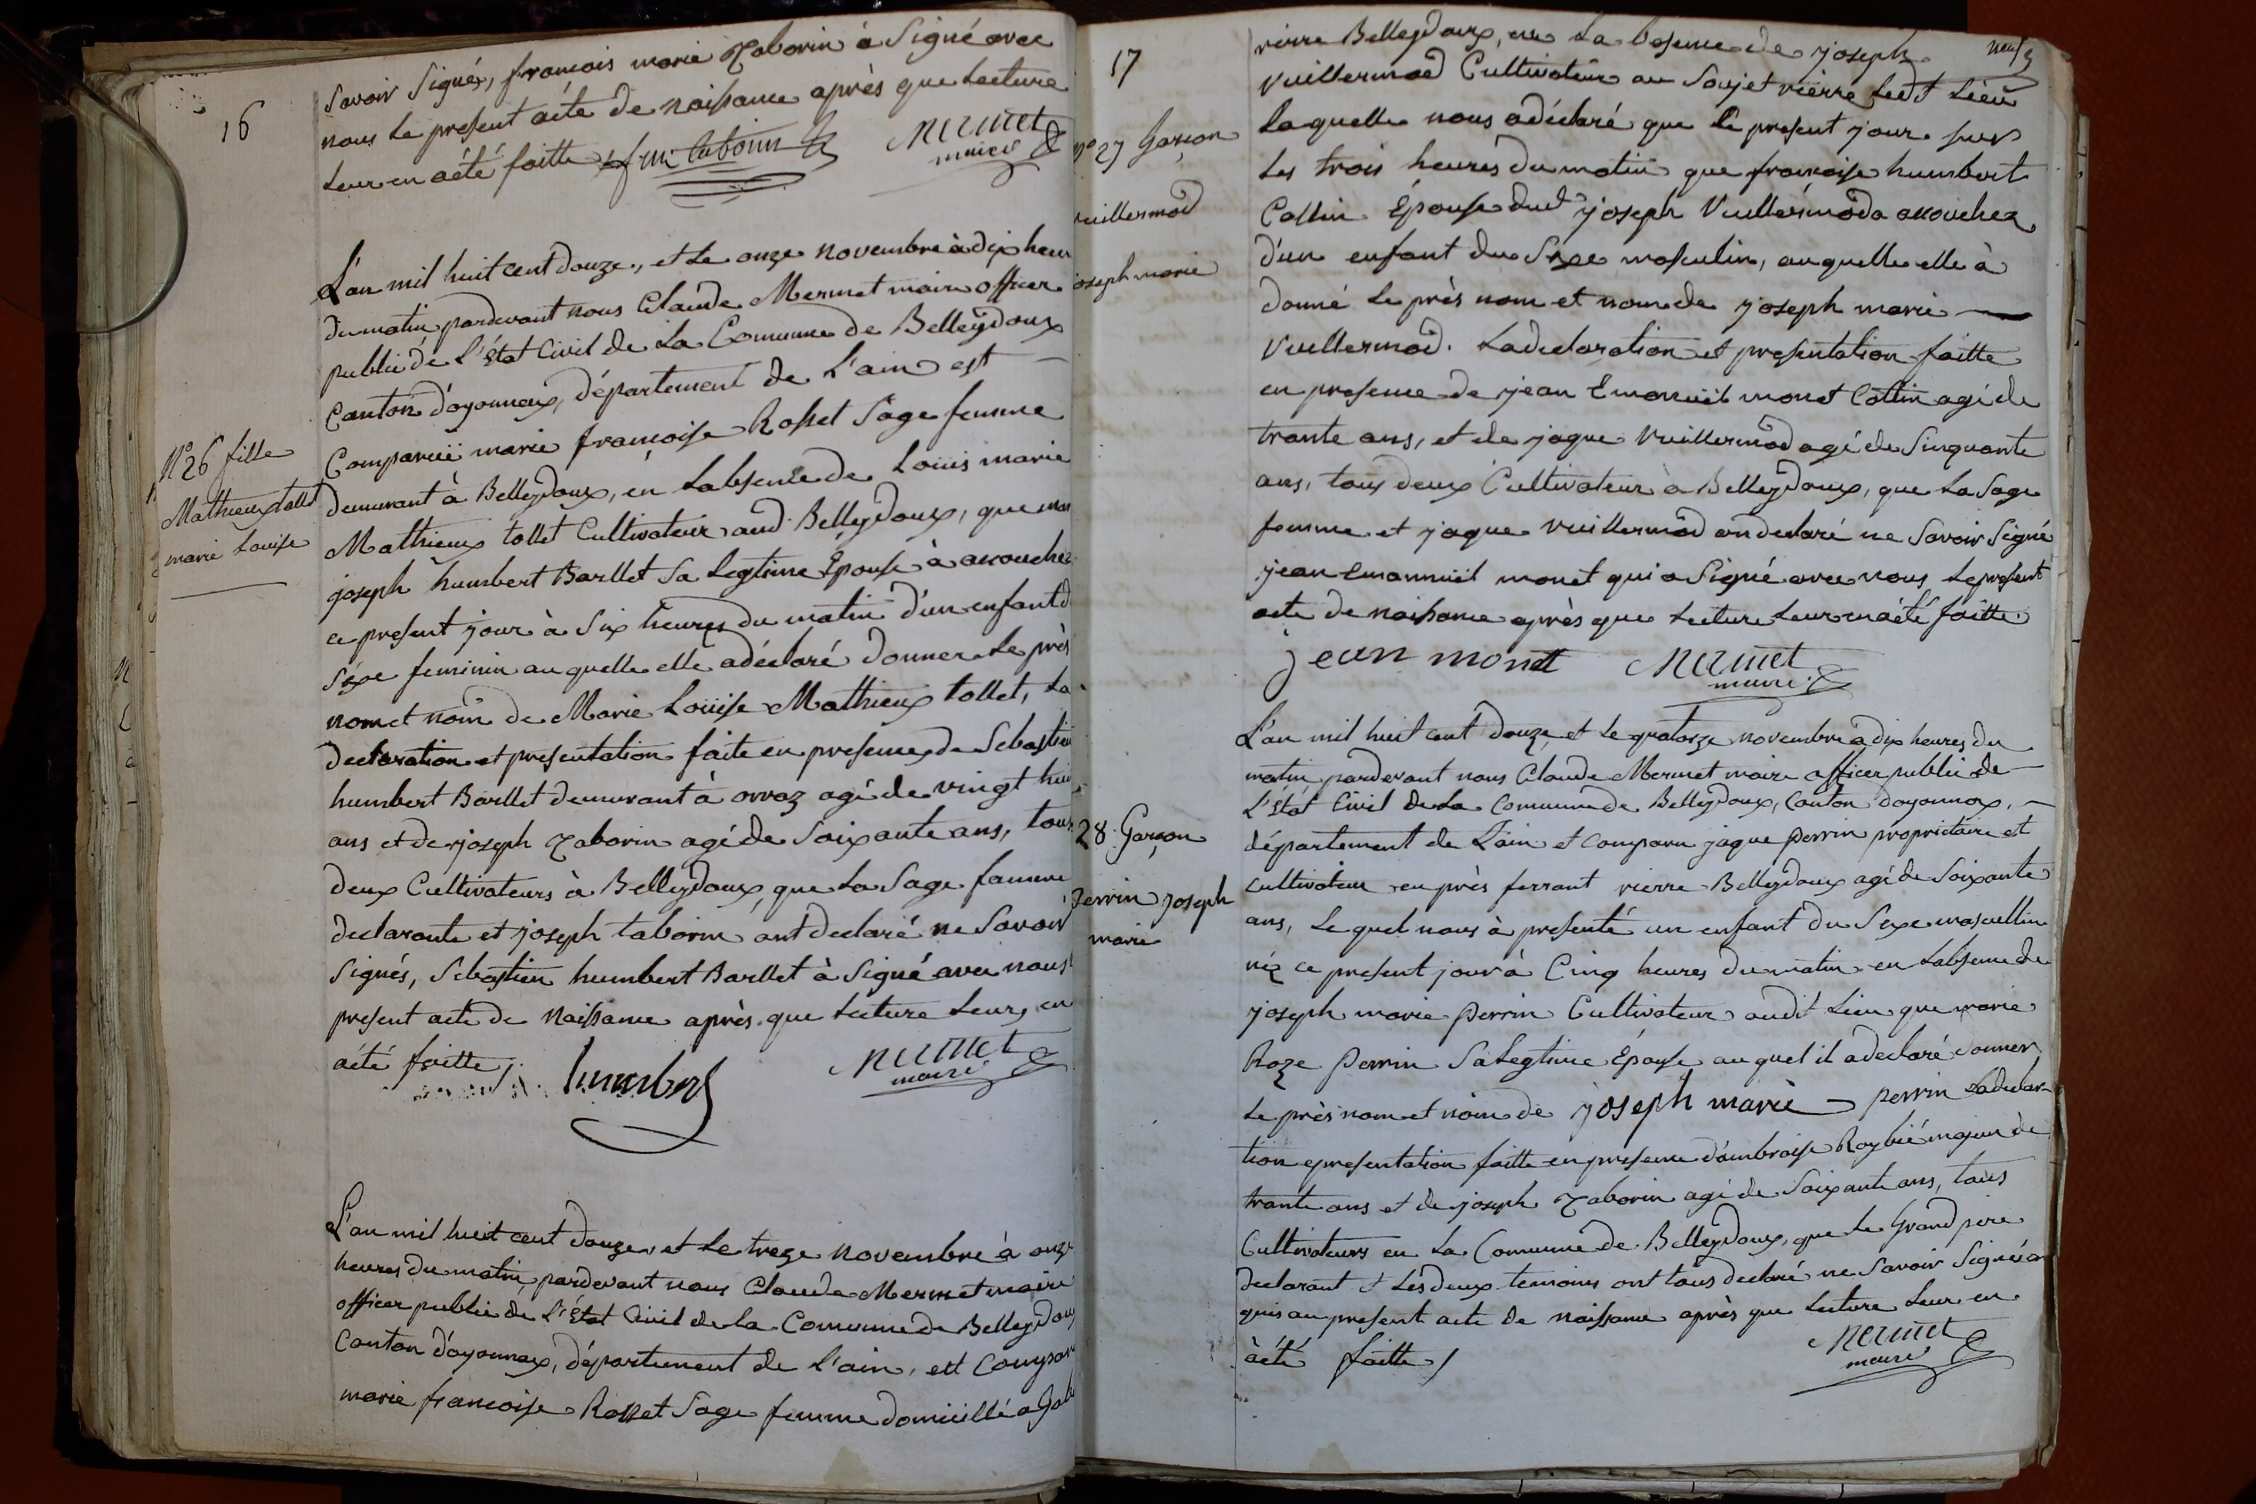 16
Savoir Signés, françois marie Taborin à Signé avec
nous Le present acte de naissance après que Lecture
Leur en aété faitte fm taborin Mermet
maire
L'an mil huit cent douze, et Le onze novembre à dix heur
du matin pardevant nous Claude Mermet maire officer
public de L'état Civil de La Commune de Belleydoux
Canton d'oyonnax, département de L'ain est
Comparuë marie françoise Rosset Sage femme
demeurant à Belleydoux, en Labsence de Loüis marie
Mathieux tollet Cultivateur aud Belleydoux, que
joseph humbert Barllet Sa Legtime Épouse à accouchez
ce present jour à Six heures du matin d'un enfant d
Séxe feminin au quelle elle adéclaré donner Le près
nom et nom de Marie Loüise Mathieux tollet, La
declaration et presentation faite en presence de Sebastien
humbert Barllet demeurant à orvaz agé de vingt hui
ans et de joseph Taborin agé de Soixante ans, tous
deux Cultivateurs à Belleydoux, que La Sage famme
declarante et joseph taborin ont declaré ne Savoir
Signés, Sebastien humbert Barllet à Signé avec nous
present acte de Naissance après que Lecture Leurs en
aété faitte humbert Mermet
maire
N° 26 fille
Mathieux tollet
marie Louise
L'an mil huit cent douze, et Le treze Novembre à onze
heures du matin, pardevant nous Claude Mermet maire
officer public de L'État Civil de la Commune de Belleydoux
Canton d'oyonnax, département de L'ain, est Compar
marie françoise Rosset Sage femme domicillé a
17
neuf
rierre Belleydoux, en La besence de joseph
Vuillermod Cultivateur au Soujet rierre Ledt Lieu
Laquelle nous adéclaré que Le present jour sur
Les trois heures du matin que françoise humbert
Collin Épouse dud joseph Vuillermod a accouchez
d'un enfant du Sexe masculin, auquelle elle à
donné Le près nom et nom de joseph marie
Vuillermod. La declaration et presentation faitte
en presence de jean Emanuël monet Collin agé de
trante ans, et de jaque Vuillermod agé de Sinquante
ans, tous deux Cultivateur à Belleydoux, que La Sage
femme et jaque Vuillermod on declaré ne Savoir Signé
jean Emannuël monet qui a Signé avec nous Le present
acte de naissance après que Lecture Leur en aété faitte.
jean monet Mermet
maire
N° 27 Garçon
vuillermod
joseph marie
L'an mil huit cent douze, et Le quatorze novembre à dix heures du
matin pardevant nous Claude Mermet maire officer public de
L'état Civil de La Commune de Belleydoux, Canton doyonnax,
département de L'ain et comparu jaque perrin propriétaire et
cultivateur en près ferrant rierre Belleydoux agé de Soixante
ans, Le quel nous à presenté un enfant du Sexe mascullin
néz ce present jour à Cinq heures du matin en Labsence de
joseph marie perrin Cultivateur audit Lieu que marie
Roze perrin Sa Legtime Épouse au quel il adeclaré donner
Le près nom et nom de joseph marie perrin Ladeclara-
tion epresentation faitte en presence d'ambroise Roybié majeur de
trante ans et de joseph Taborin agé de Soixante ans, tous
Cultivateurs en La Commune de Belleydoux, que Le Grand pere
declarant et Les deux temoins ont tous declaré ne Savoir Signé
quis au present acte de naissance après que Lecture Leur en
àété faitte Mermet
maire
28 Garçon
Perrin joseph
marie